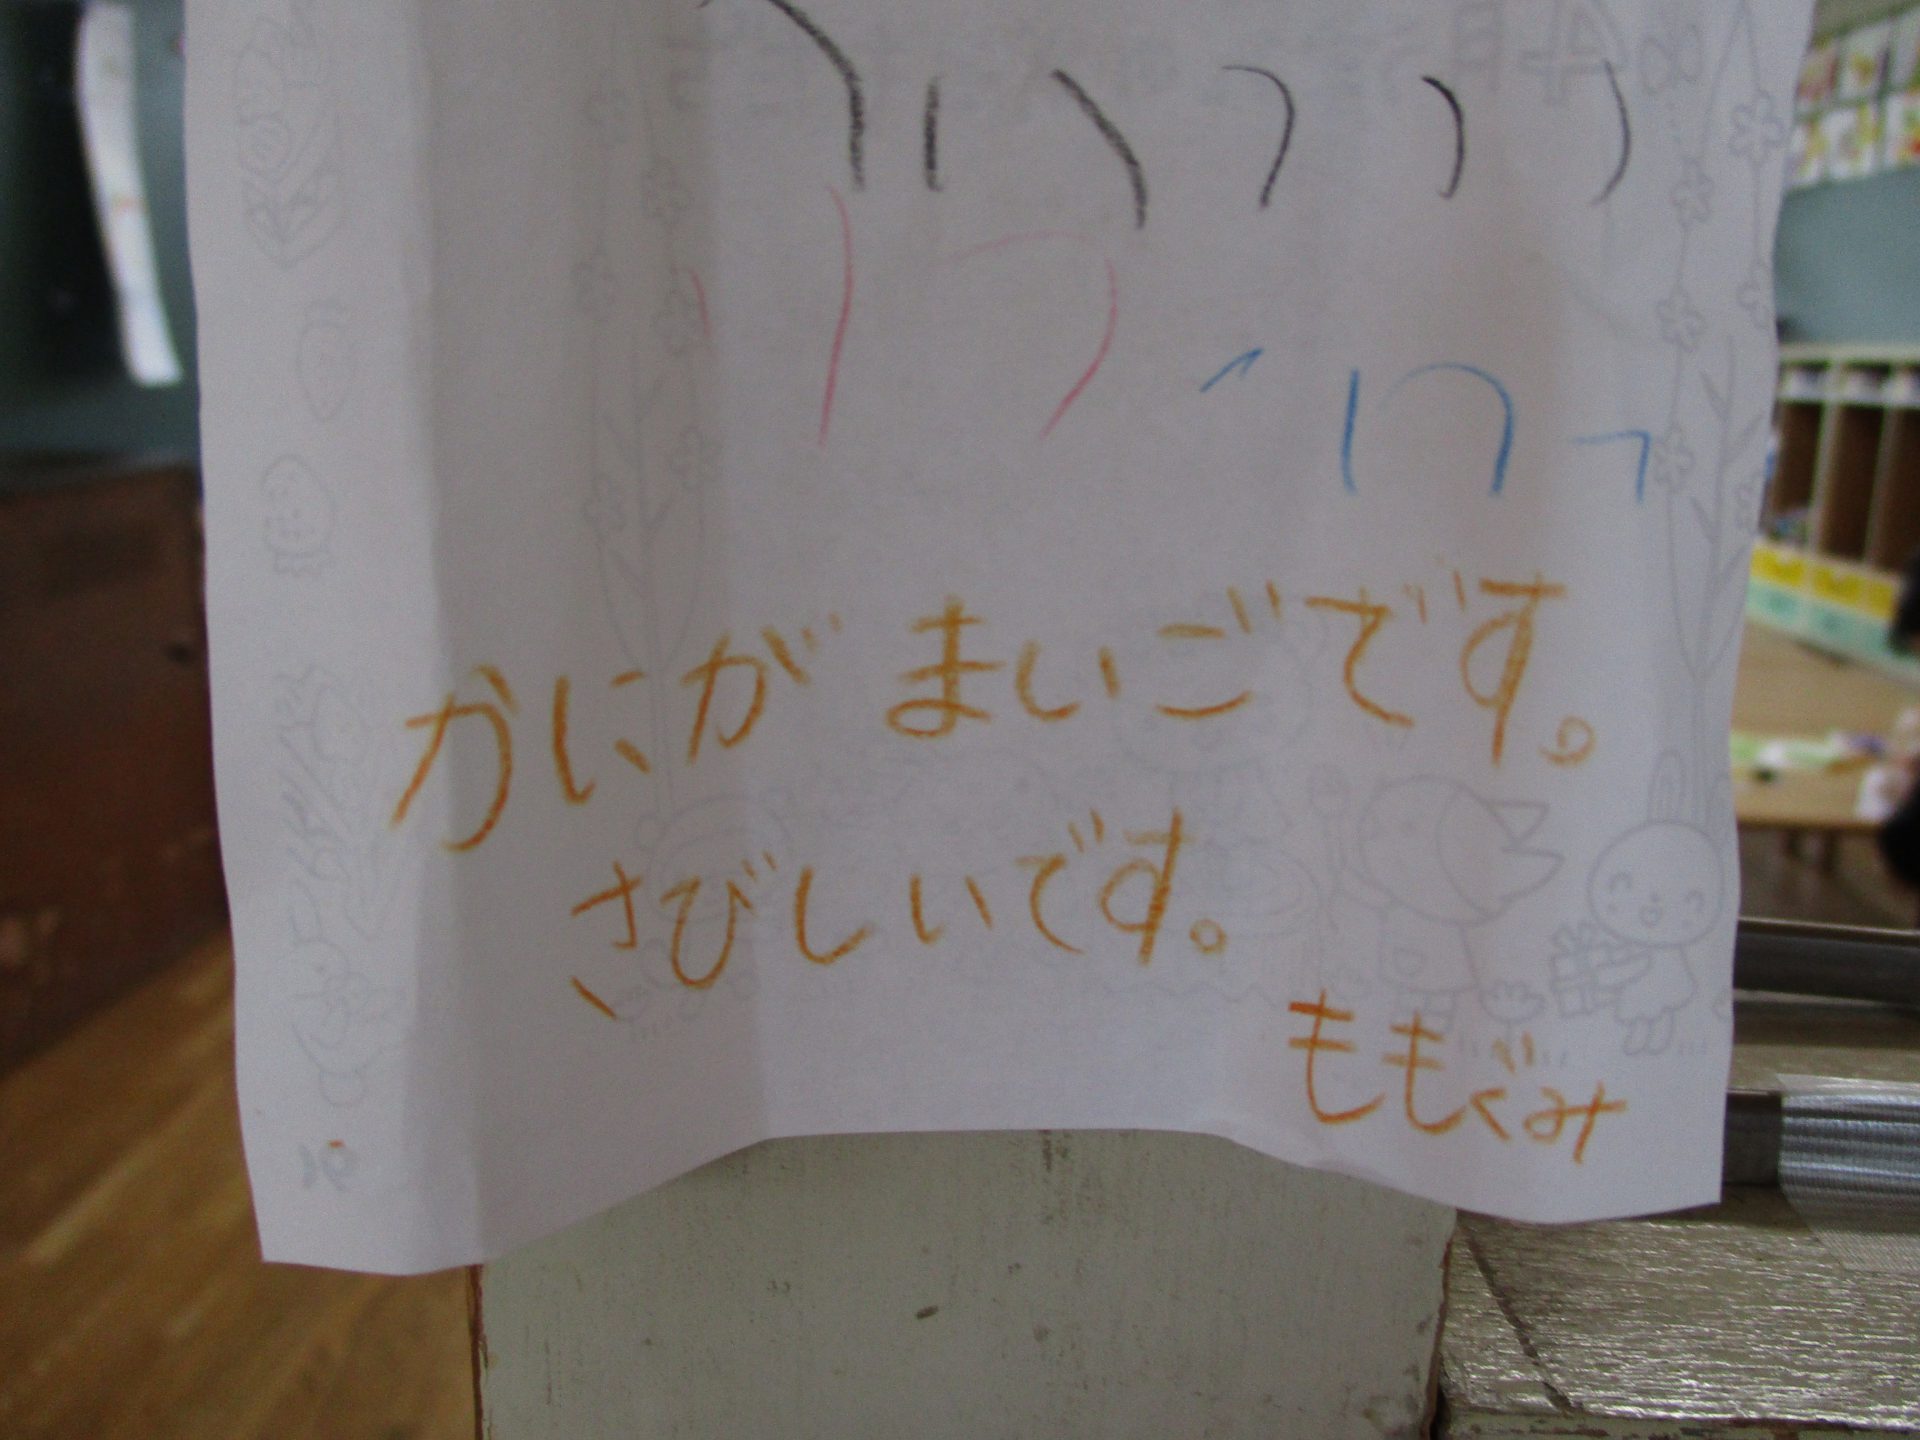 かにが まいごです。
さびしいです。
ももぐみ